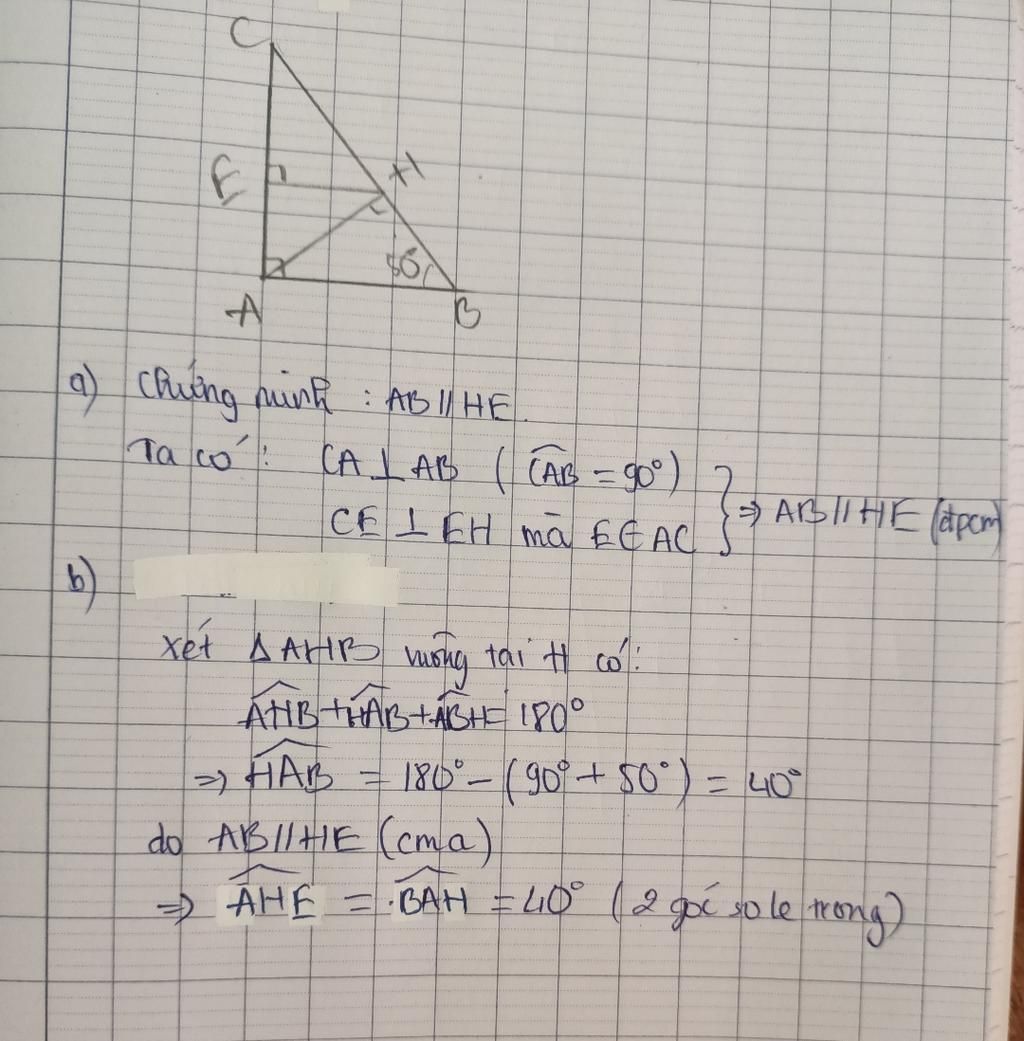 C
E
H
50°
A
B
a) Chứng minh : AB // HE.
Ta có : CA ⊥ AB ( CAB = 90° )
CE ⊥ EH mà E ∈ AC } ⇒ AB // HE (đpcm)
b)
Xét Δ AHB vuông tại H có :
AHB + HAB + ABH = 180°
⇒ HAB = 180° - (90° + 50°) = 40°
do AB // HE (cma)
⇒ AHE = BAH = 40° ( 2 góc so le trong )